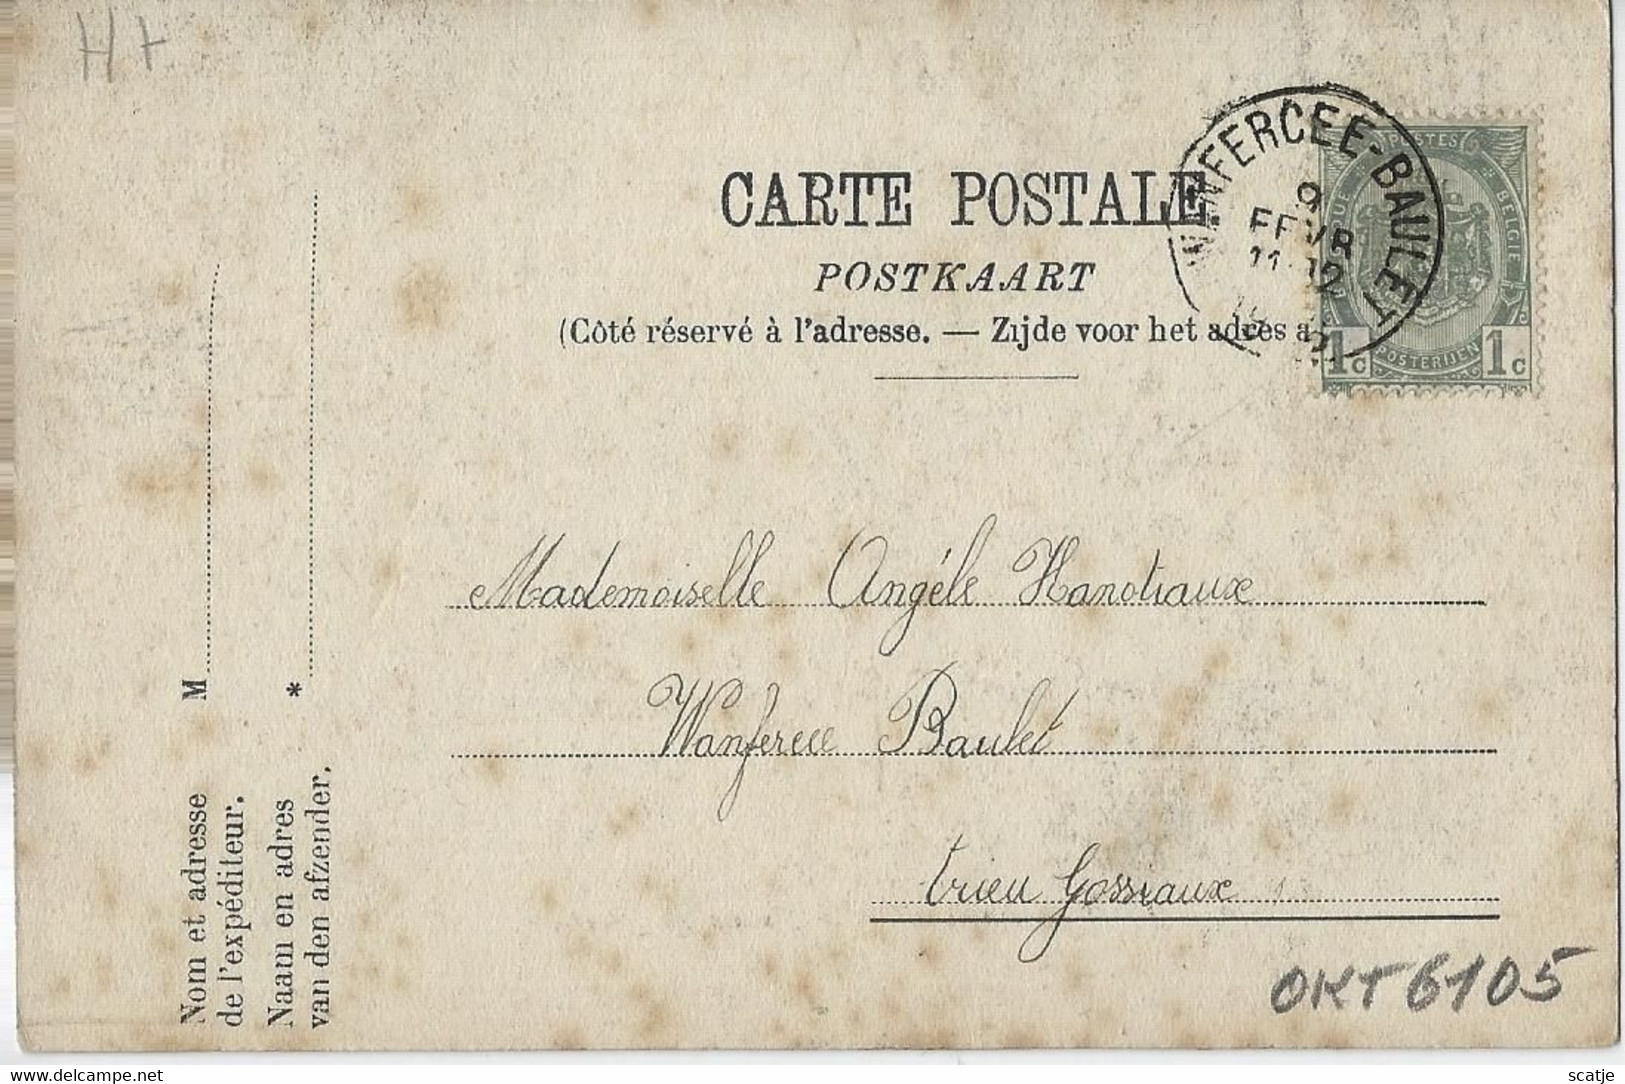 H+
CARTE POSTALE
POSTKAART
(Côté réservé à l'adresse. — Zijde voor het adres a
WANFERCEE-BAULET
9
FEVR
11-12
POSTES
BELGIE
POSTERIJEN
1c 1c
Mademoiselle Angéle Hanotiaux
Wanfercee Baulet
trieu Gossiaux
OKT 6105
M
*
Nom et adresse
de l'expéditeur.
Naam en adres
van den afzender.
delcampe.net
scatje